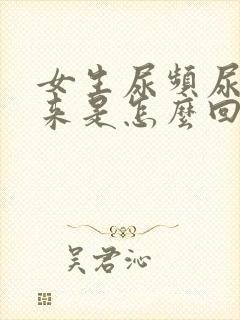 女生尿頻尿
來是怎麼回
吴君沁